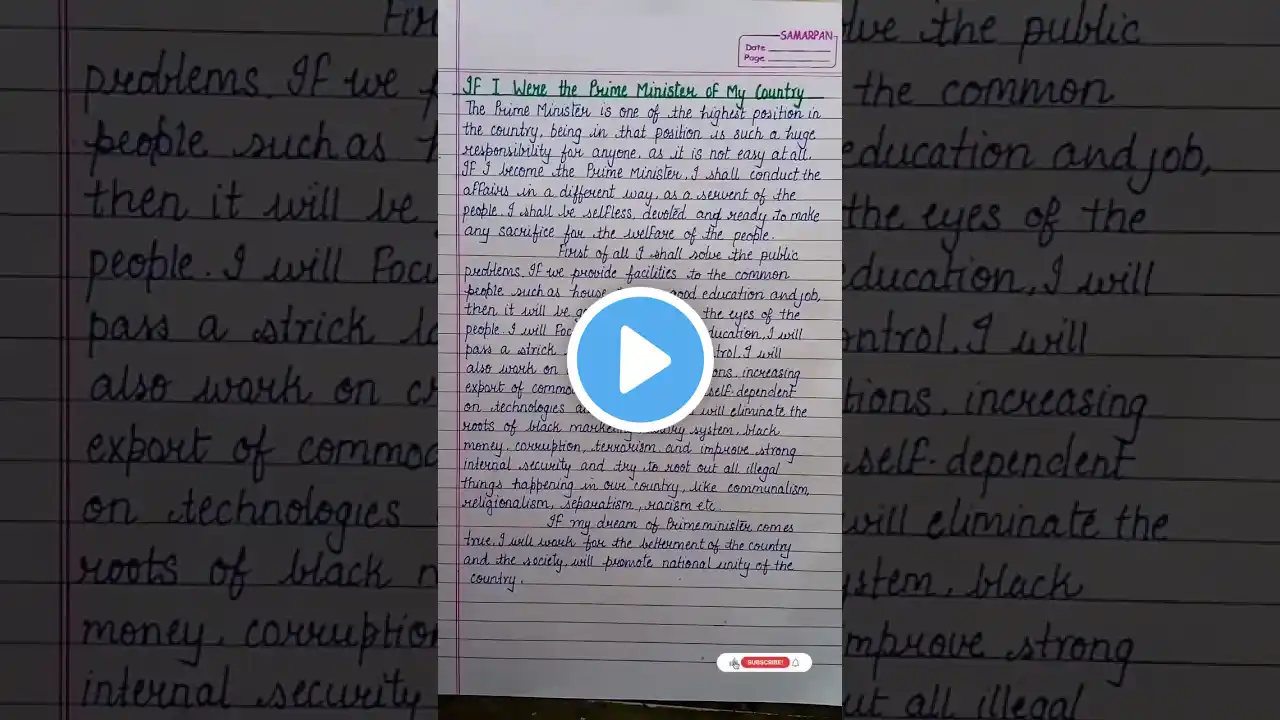 SAMARPAN
Date
Page
If I Were the Prime Minister of My Country
The Prime Minister is one of the highest position in
the country, being in that position is such a huge
responsibility for anyone, as it is not easy at all.
If I become the Prime Minister, I shall conduct the
affairs in a different way, as a servent of the
people. I shall be selfless, devoted and ready to make
any sacrifice for the welfare of the people.
First of all I shall solve the public
problems. If we provide facilities to the common
people such as house good education and job,
then it will be the eyes of the
people. I will education, I will
pass a strick I will
also work on increasing
export of self-dependent
on technologies will eliminate the
roots of black system, black
money, corruption, terrarism and improve strong
internal security and try to root out all illegal
things happening in our country, like communalism,
religionalism, separatism, racism etc.
If my dream of Primeminister comes
true, I will work for the betterment of the country
and the society, will promote national unity of the
country.
SUBSCRIBE!